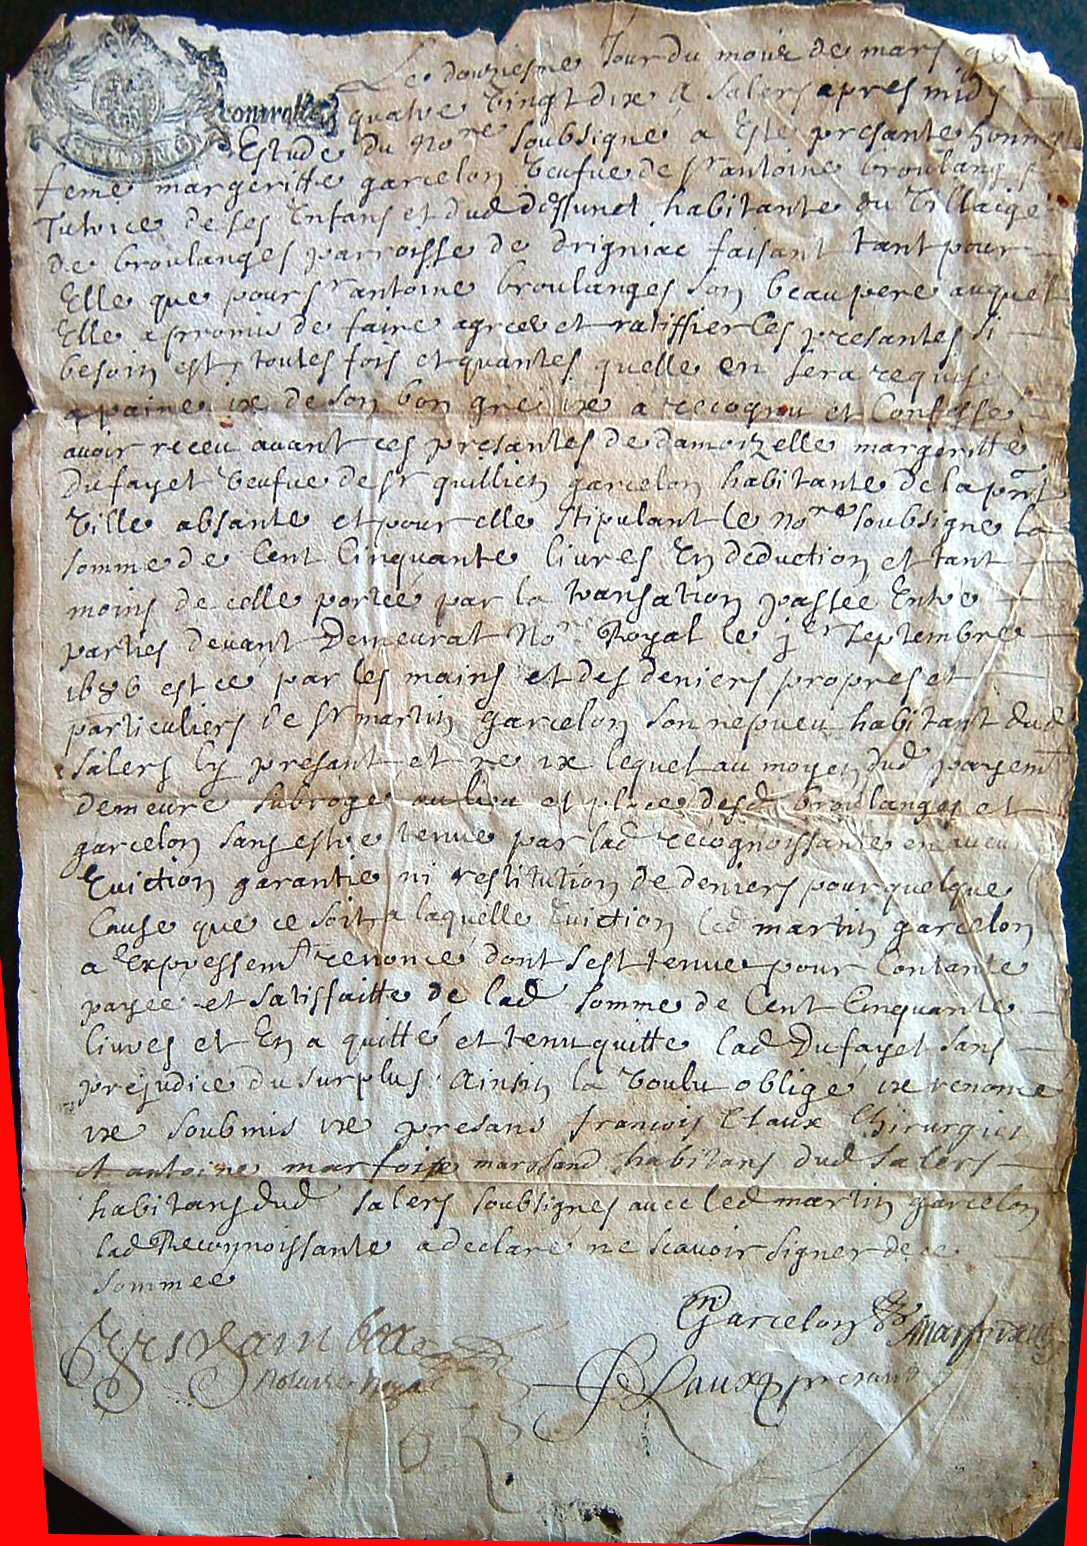 Le douziesme Jour du mois de mars
controlle quatre vingt dix A Salers apres midy
Estude du No.re soubsigné a Este presante honneste
feme margeritte garcelon veufue de Sr antoine broulanges
Tutrice de ses Enfans et dud deffunct habitante du Villaige
de broulanges parroisse de drigniac faisant tant pour
Elle que pour Sr antoine broulanges son beau pere auquel
Elle a promis de faire agreer et ratiffier les presantes si
besoin est, toutes fois et quantes quelle en sera requise
a paine &c de son bon gre &c a recognu et Confessé
avoir receu avant ces presantes de damoizelle margeritte
Dufayet veufue de Sr guillien garcelon habitante de la pnt
Ville absante et pour elle stipulant le No.re soubsigne la
somme de Cent Cinquante livres En deduction et tant
moins de celle portée par la transation passée Entre
parties devant Demeurat No.re Royal le jer septembre
1686 est ce par les mains et des deniers propres et
particuliers de Sr martin garcelon son nepueu habitant dud
Salers Cy presant et &c lequel au moyen dud payemt
demeure subrogé au lieu et place desd broulanges et
garcelon sans estre tenue par lad recognoissante en aucune
Eviction garantie ni restitution de deniers pour quelque
Cause que ce soit a laquelle Eviction led martin garcelon
a Expressemt renoncé dont s'est tenue pour Contante
payée et satisfaitte de lad somme de Cent Cinquante
livres et En a quitté et tenu quitte lad Dufayet sans
prejudice du surplus. Ainsin la voulu obligé &c renoncé
&c soubmis &c presans francois Claux Chirurgien
et antoine marfoise marchand habitans dud Salers
habitans dud Salers soubsignes avec led martin garcelon
lad Recognoissante a declaré ne scavoir signer de ce
sommée
Garcelon
Claux presant
Notaire Royal